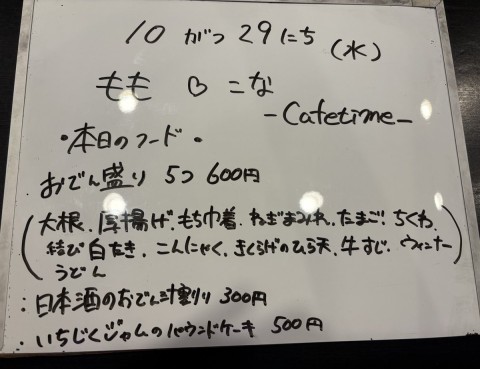 10 がつ 29 にち (水)
もも ♡ こな
-Cafetime-
・本日のフード・
おでん盛り 5つ 600円
(大根、厚揚げ、もち巾着、ねぎまみれ、たまご、ちくわ、
結び白たき、こんにゃく、きくらげのひら天、牛すじ、ウィンナー
うどん)
:日本酒のおでん汁割り 300円
・いちじくジャムのパウンドケーキ 500円